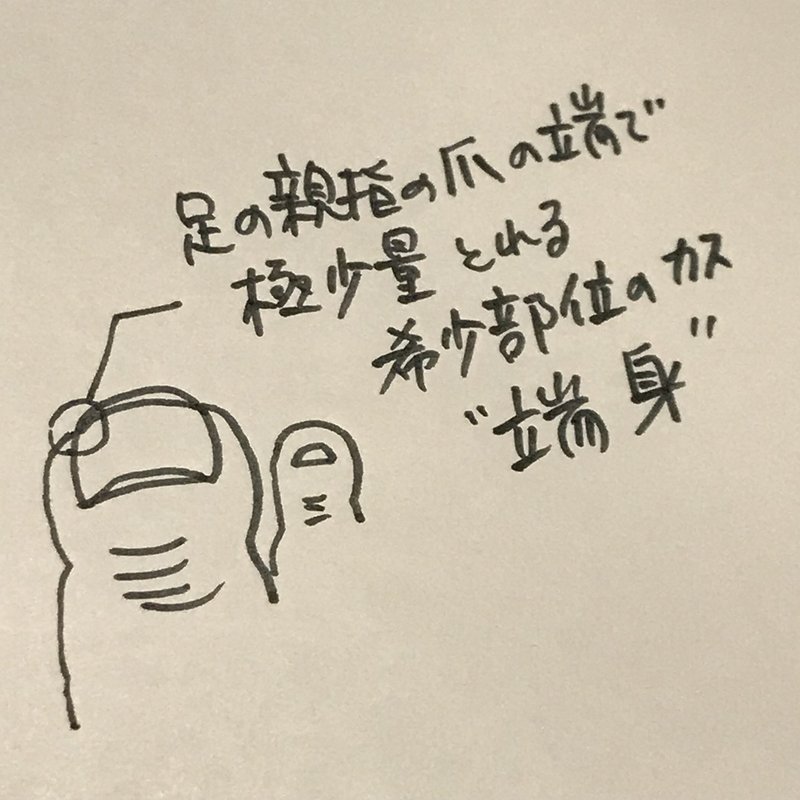 足の親指の爪の端で
極少量とれる
希少部位のカス
"端身"